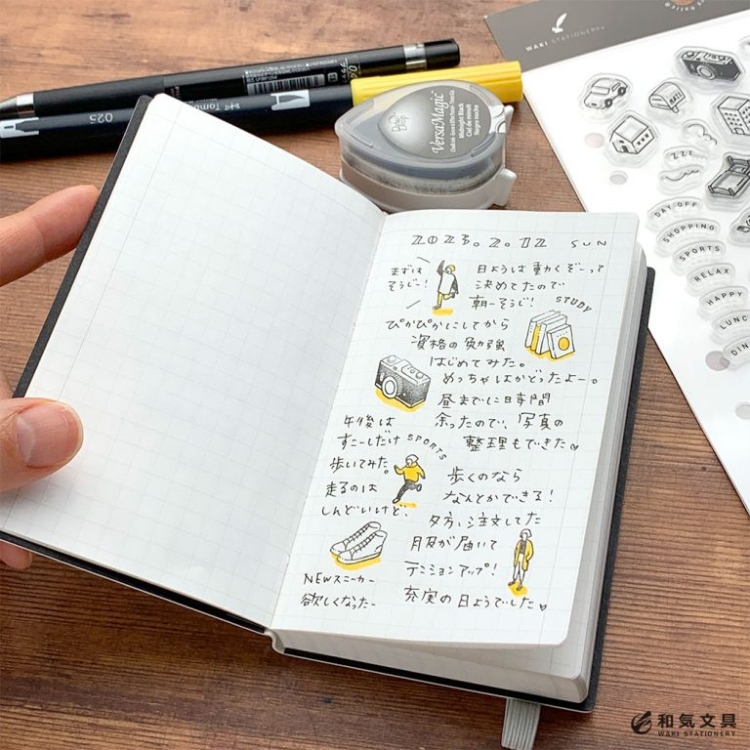 WAKI STATIONERY
Tombow
025
VersaMagic
Midnight Black
DAY OFF
SHOPPING
SPORTS
RELAX
HAPPY
LUNC
DIN
ZZZ
2023.2.12 SUN
まずは
そうじー!
日ようは動くぞーって
決めてたので
朝一そうじ!
STUDY
ぴかぴかにしてから
資格の勉強
はじめてみた。
めっちゃはかどったよー。
昼までに時間
余ったので、写真の
整理もできた♡
午後は
すこーしだけ
SPORTS
歩いてみた。
走るのは
しんどいけど、
歩くのなら
なんとかできる!
夕方、注文してた
月反が届いて
テンションアップ!
NEWスニーカー
欲しくなったー
充実の日ようでした♡
和気文具
WAKI STATIONERY